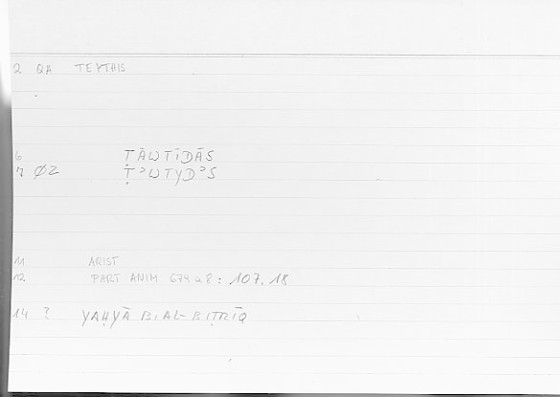 2 QA TEYTHIS
6 ṬĀWTĪDĀS
7 ØZ ṬʾWTYDʾS
11 ARIST
12 PART ANIM 679 a 8 : 107.18
14 ? YAḤYĀ B. AL-BIṬRĪQ